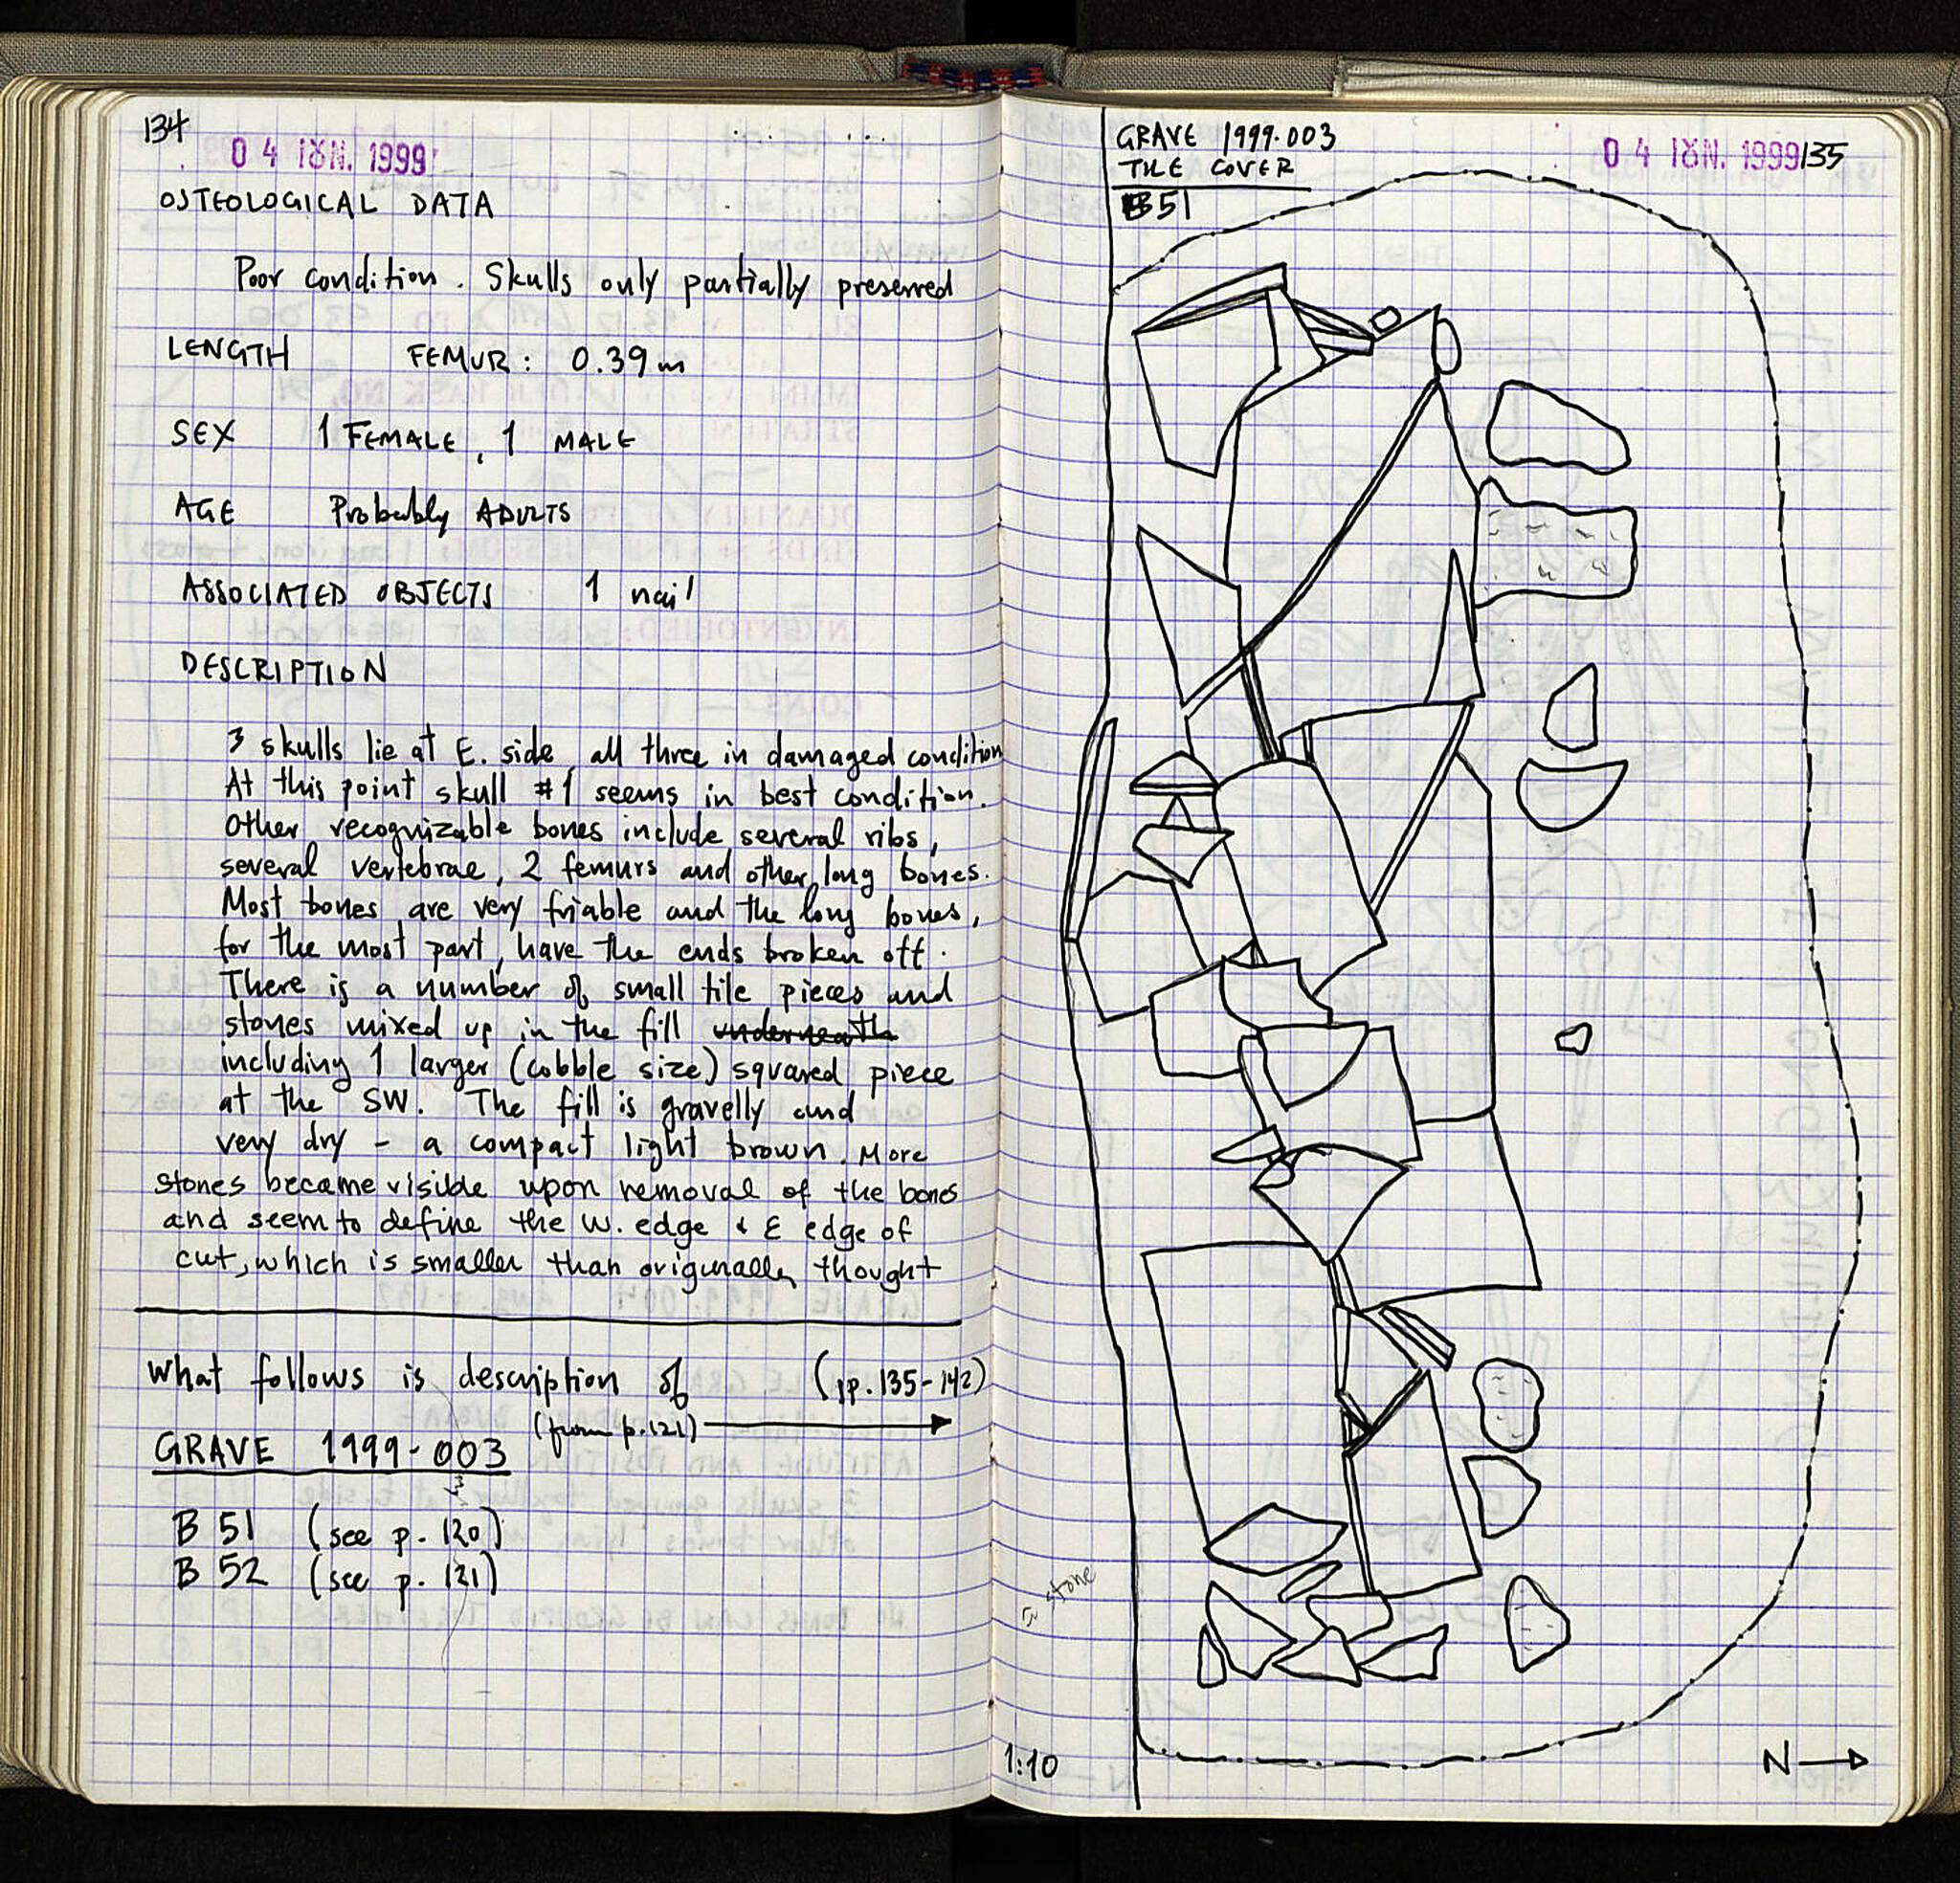 134
04 ΙΟΥΝ. 1999
OSTEOLOGICAL DATA
Poor condition. Skulls only partially preserved
LENGTH FEMUR: 0.39 m
SEX 1 FEMALE, 1 MALE
AGE Probably ADULTS
ASSOCIATED OBJECTS 1 nail
DESCRIPTION
3 skulls lie at E. side, all three in damaged condition
At this point skull #1 seems in best condition.
Other recognizable bones include several ribs,
several vertebrae, 2 femurs and other long bones.
Most bones are very friable and the long bones,
for the most part, have the ends broken off.
There is a number of small tile pieces and
stones mixed up in the fill underneath
including 1 larger (cobble size) squared piece
at the SW. The fill is gravelly and
very dry - a compact light brown. More
stones became visible upon removal of the bones
and seem to define the W. edge & E edge of
cut, which is smaller than originally thought
What follows is description of (pp. 135-142)
(from p. 121)
GRAVE 1999-003
3
B 51 (see p. 120)
B 52 (see p. 121)
GRAVE 1999-003
TILE COVER
B51
04 ΙΟΥΝ. 1999
135
stone
1:10
N